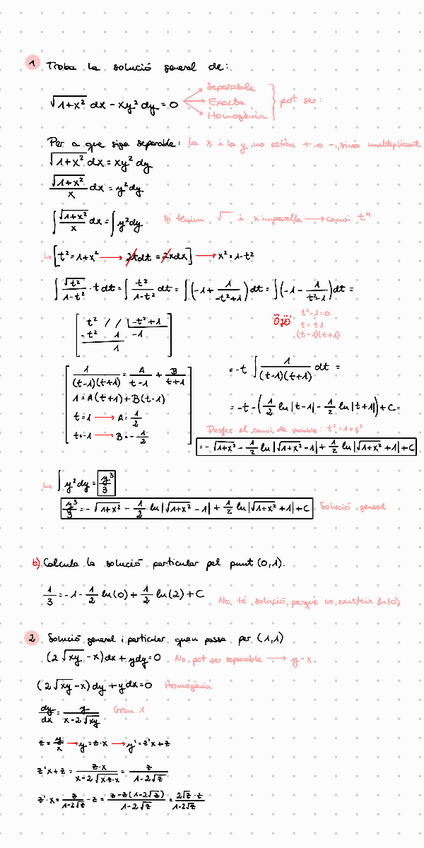 1 Troba la solució general de:
√1+x² dx - xy² dy = 0
Separable
Exacta
Homogènia
pot ser:
Per a que siga separable: la x i la y no estàn + o -, sinó multiplicant
√1+x² dx = xy² dy
√1+x²/x dx = y² dy
∫ √1+x²/x dx = ∫ y² dy
Si tenim √ i x imparella → canvi tⁿ
[t² = 1+x² → 2tdt = 2xdx] → x² = 1-t²
∫ √t²/1-t² · t dt = ∫ t²/1-t² dt = ∫ (-1 + 1/-t²+1) dt = ∫ (-1 - 1/t²-1) dt =
t² // |-t²+1
-t² 1 -1
1
Ojo
t²-1=0
t=±1
(t-1)(t+1)
1/(t-1)(t+1) = A/t-1 + B/t+1
1 = A(t+1) + B(t-1)
t=1 → A = 1/2
t=-1 → B = -1/2
= -t - ∫ 1/(t-1)(t+1) dt =
= -t - (1/2 ln|t-1| - 1/2 ln|t+1|) + C =
Desfer el canvi de variable: t² = 1+x²
= -√1+x² - 1/2 ln|√1+x² -1| + 1/2 ln|√1+x² +1| + C
∫ y² dy = y³/3
y³/3 = -√1+x² - 1/2 ln|√1+x² -1| + 1/2 ln|√1+x² +1| + C Solució general
b) Calcula la solució particular pel punt (0,1).
1/3 = -1 - 1/2 ln(0) + 1/2 ln(2) + C
No té solució, perquè no existeix ln(0)
2 Solució general i particular quan passa per (1,1)
(2√xy - x) dx + ydy = 0 No pot ser separable → y-x.
(2√xy - x) dy + y dx = 0 Homogènia
dy/dx = y/x-2√xy Grau 1
z = y/x → y = z·x → y' = z'x + z
z'x + z = z·x/x-2√xzx = z/1-2√z
z'·x = z/1-2√z - z = z-z(1-2√z)/1-2√z = 2√z·z/1-2√z